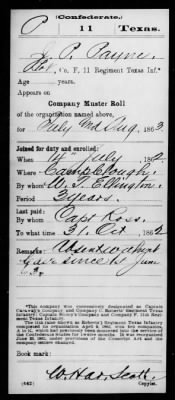 (Confederate.)
P 11 Texas.
J. P. Payne
Pvt, Co. F, 11 Regiment Texas Inf.*
Age years.
Appears on
Company Muster Roll
of the organization named above,
for July and Aug, 1863.
Joined for duty and enrolled:
When 14" July, 1862.
Where Camp Clough
By whom W. J. Ellington
Period 3 years.
Last paid:
By whom Capt Ross.
To what time 31 Oct, 1862
Remarks: Absent without
leave since 1st June
63
Book mark:
W. Har. Scott.
(642) Copyist.